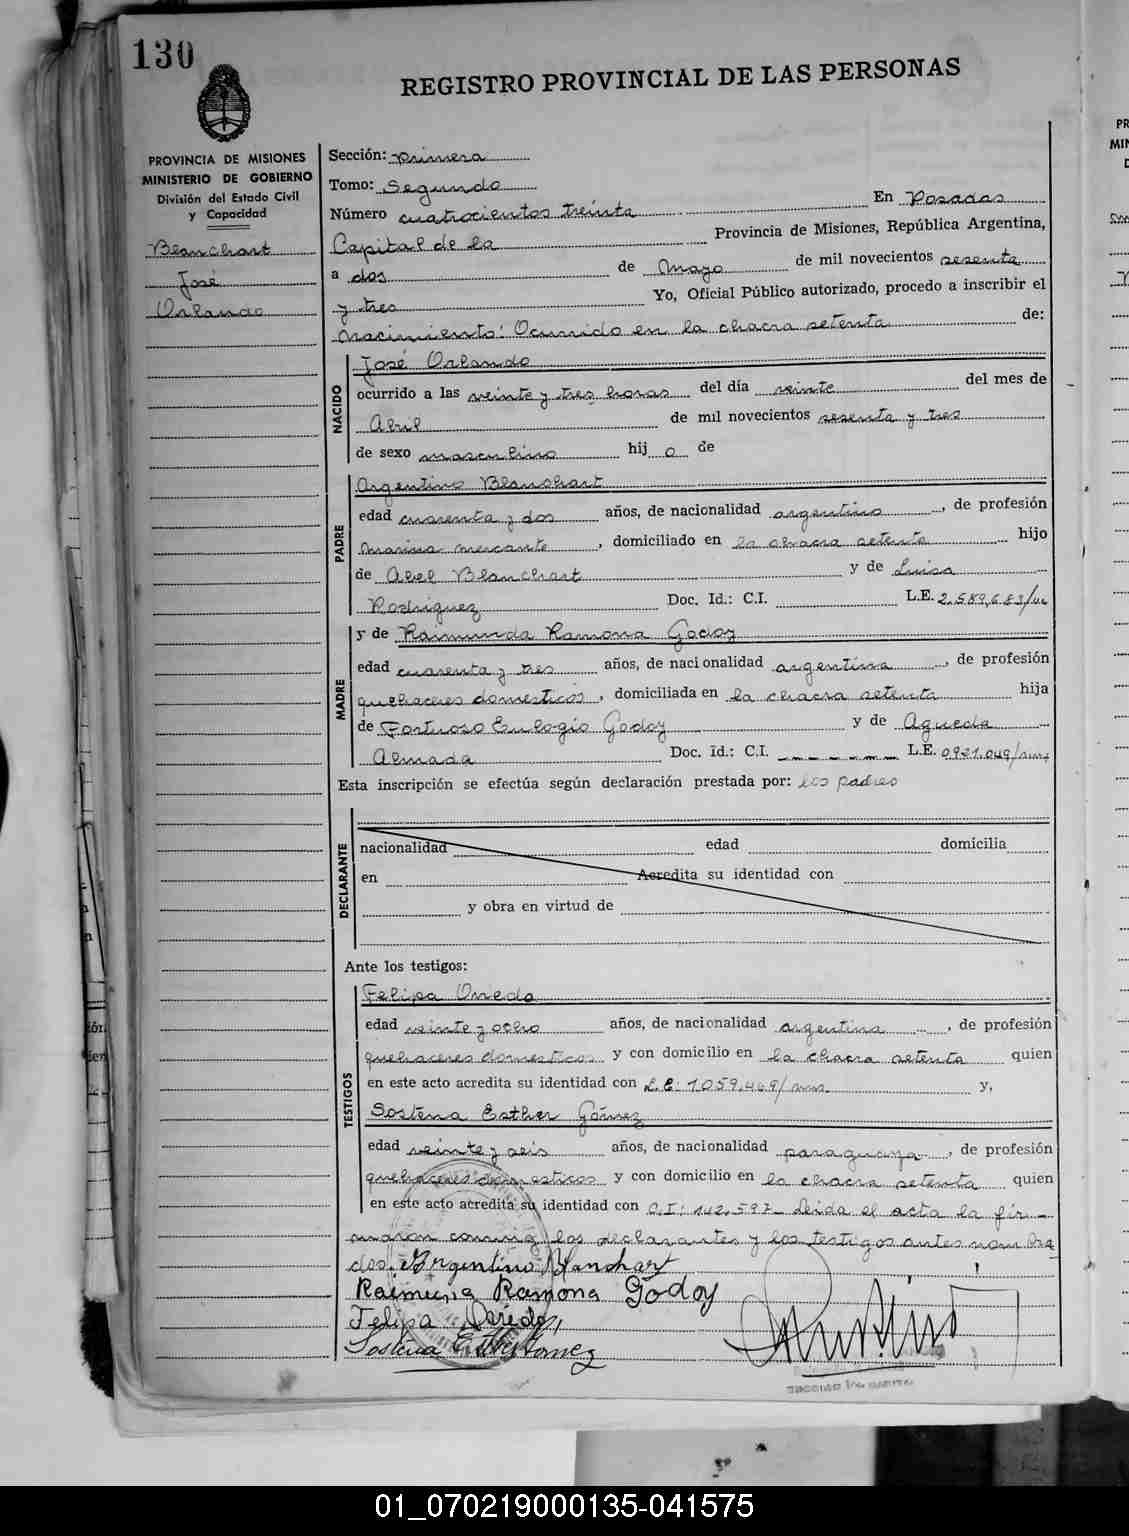 130
REGISTRO PROVINCIAL DE LAS PERSONAS
PROVINCIA DE MISIONES
MINISTERIO DE GOBIERNO
División del Estado Civil
y Capacidad
Blanchart
José
Orlando
Sección: Primera
Tomo: Segundo
Número cuatrocientos treinta En Posadas
Capital de la Provincia de Misiones, República Argentina,
a dos de Mayo de mil novecientos sesenta
y tres Yo, Oficial Público autorizado, procedo a inscribir el
nacimiento: Ocurrido en la chacra setenta de:
NACIDO
José Orlando
ocurrido a las veinte y tres horas del día veinte del mes de
Abril de mil novecientos sesenta y tres
de sexo masculino hij o de
PADRE
Argentino Blanchart
edad cuarenta y dos años, de nacionalidad argentino, de profesión
marina mercante, domiciliado en la chacra setenta hijo
de Abel Blanchart y de Luisa
Rodriguez Doc. Id.: C.I. L.E. 2.589.683/
MADRE
y de Raimunda Ramona Godoy
edad cuarenta y tres años, de nacionalidad argentina, de profesión
quehaceres domesticos, domiciliada en la chacra setenta hija
de Fortuoso Eulogio Godoy y de Agueda
Almada Doc. Id.: C.I. L.E. 0921.049/
Esta inscripción se efectúa según declaración prestada por: los padres
DECLARANTE
nacionalidad edad domicilia
en Acredita su identidad con
y obra en virtud de
Ante los testigos:
TESTIGOS
Felipa Oviedo
edad veinte y ocho años, de nacionalidad argentina, de profesión
quehaceres domesticos y con domicilio en la chacra setenta quien
en este acto acredita su identidad con L.E: 1059.469/ y,
Sostena Esther Gómez
edad veinte y seis años, de nacionalidad paraguaya, de profesión
quehaceres domesticos y con domicilio en la chacra setenta quien
en este acto acredita su identidad con C.I: 142.597_ Leida el acta la fir_
maron conmigo los declarantes y los testigos antes nombra
dos. Argentino Blanchart
Ramona Godoy
Felipa Oviedo
Sostena Esther Gomez
01_070219000135-041575